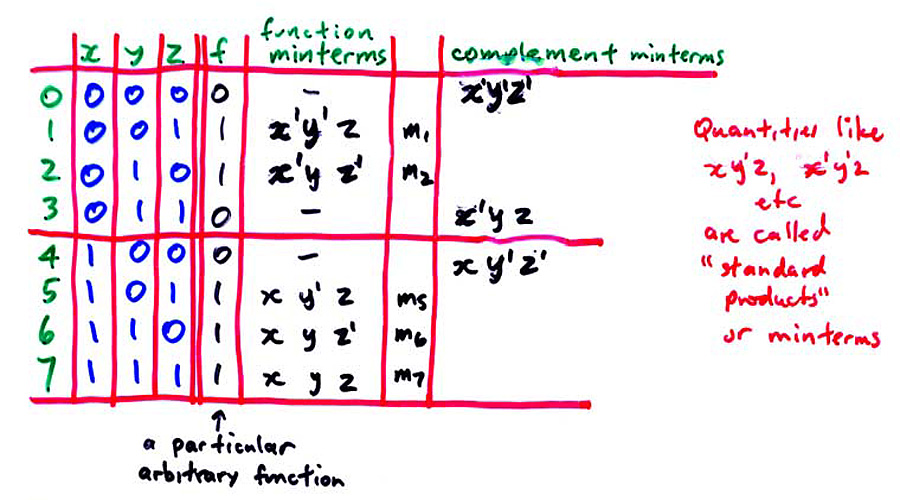 function
x y z f minterms complement minterms
0 0 0 0 0 – x'y'z'
1 0 0 1 1 x'y'z m1
2 0 1 0 1 x'y z' m2
3 0 1 1 0 – x'y z
4 1 0 0 0 – x y'z'
5 1 0 1 1 x y' z m5
6 1 1 0 1 x y z' m6
7 1 1 1 1 x y z m7
↑
a particular
arbitrary function
Quantities like
x y'z, x'y'z
etc
are called
"standard
products"
or minterms